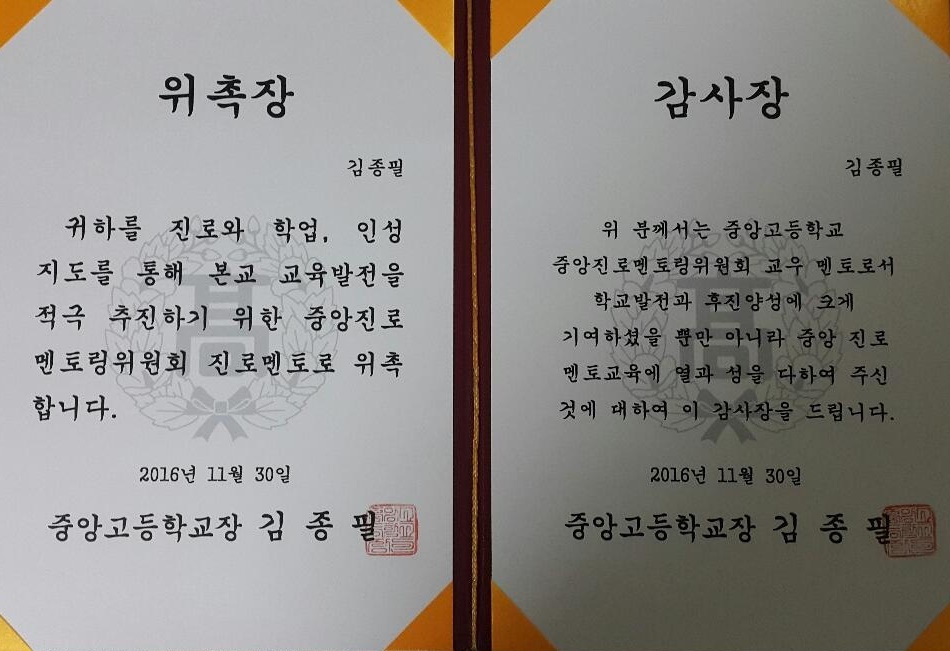 위촉장
김종필
귀하를 진로와 학업, 인성
지도를 통해 본교 교육발전을
적극 추진하기 위한 중앙진로
멘토링위원회 진로멘토로 위촉
합니다.
2016년 11월 30일
중앙고등학교장 김 종 필
감사장
김종필
위 분께서는 중앙고등학교
중앙진로멘토링위원회 교우 멘토로서
학교발전과 후진양성에 크게
기여하셨을 뿐만 아니라 중앙 진로
멘토교육에 열과 성을 다하여 주신
것에 대하여 이 감사장을 드립니다.
2016년 11월 30일
중앙고등학교장 김 종 필
高
高